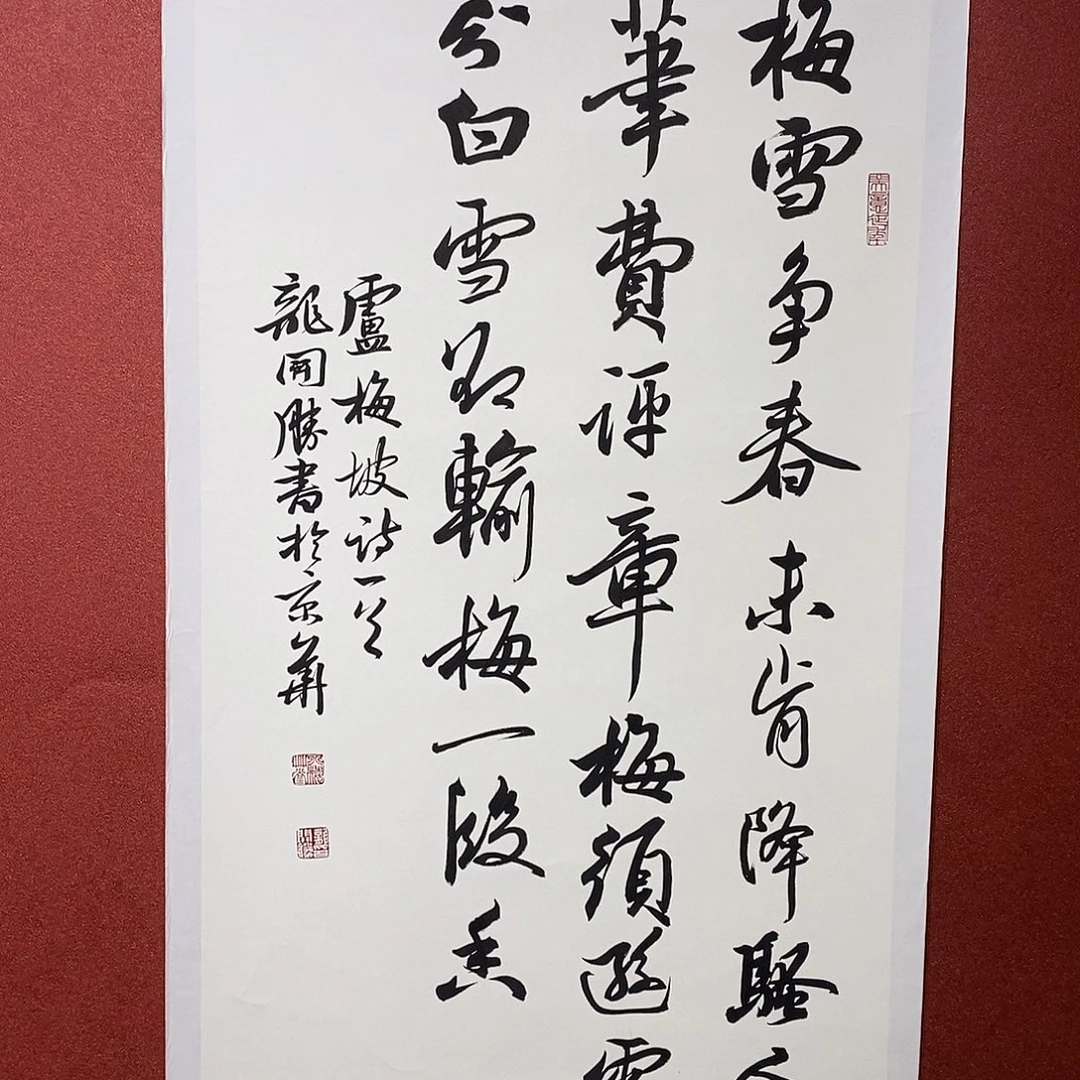 梅雪争春未肯降騷人
筆費評章梅須遜雪
分白雪却輸梅一段香
盧梅坡詩一首
龍開勝書於京華